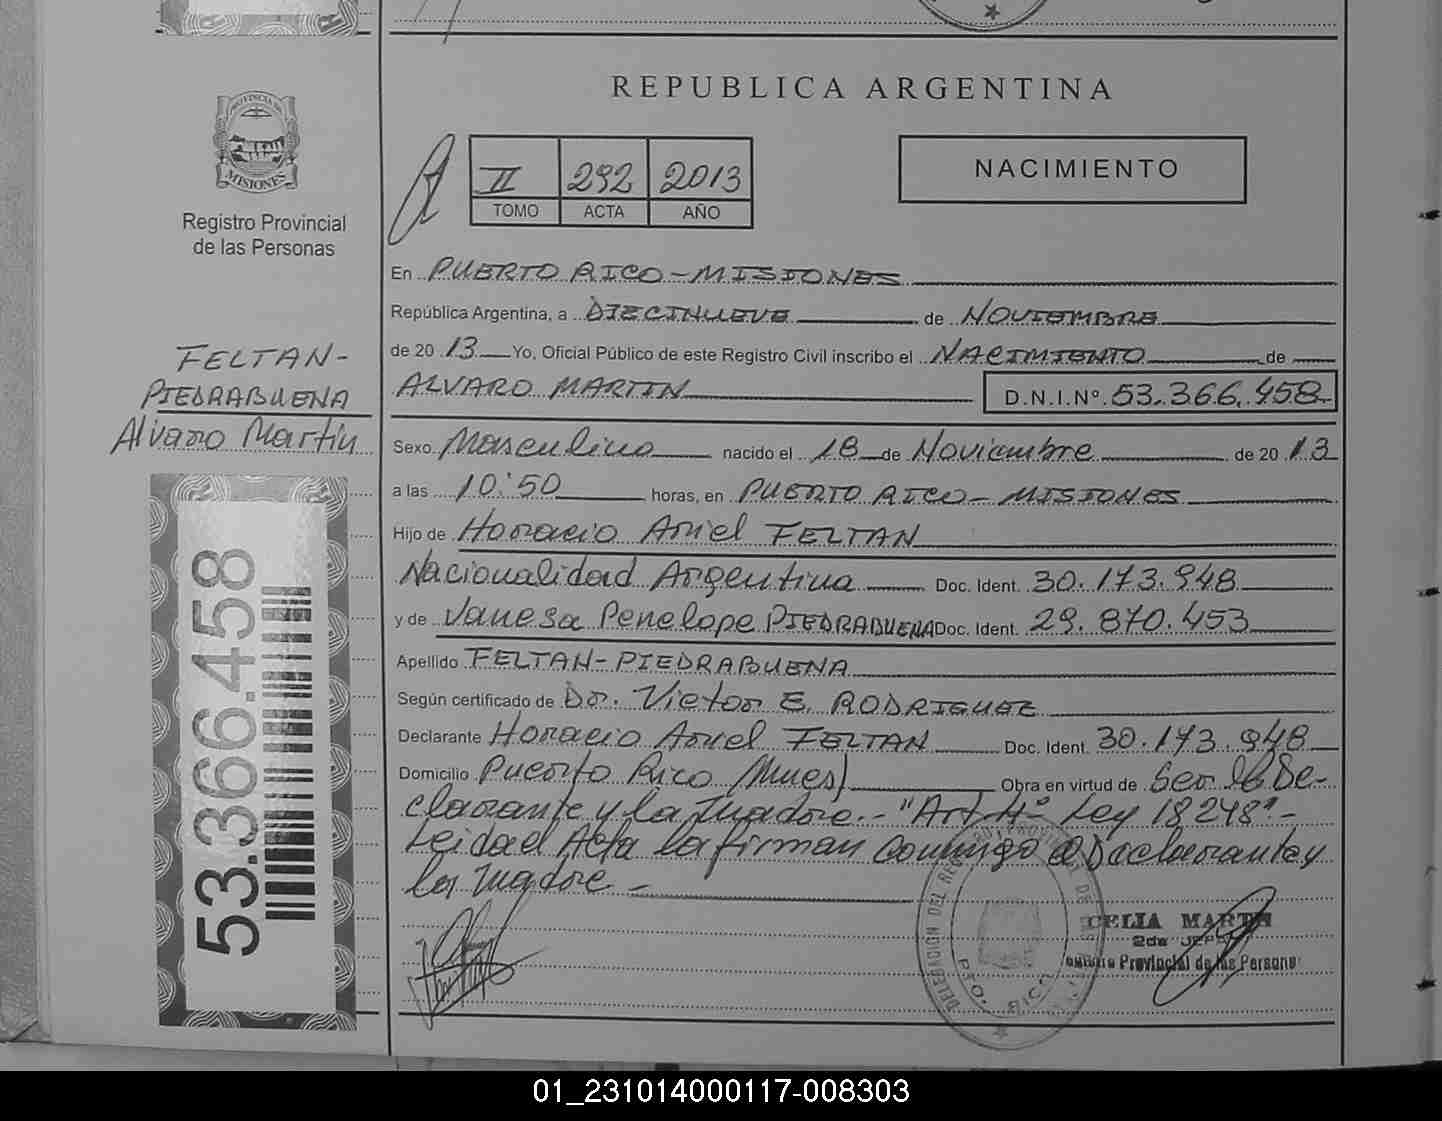 REPUBLICA ARGENTINA
PROVINCIA DE
MISIONES
Registro Provincial
de las Personas
II 292 2013
TOMO ACTA AÑO
NACIMIENTO
En PUERTO RICO - MISIONES
República Argentina, a DIECINUEVE de NOVIEMBRE
de 20 13 Yo, Oficial Público de este Registro Civil inscribo el NACIMIENTO de
ALVARO MARTIN D.N.I.Nº. 53.366.458
FELTAN-
PIEDRABUENA
Alvaro Martin
Sexo Masculino nacido el 18 de Noviembre de 20 13
a las 10:50 horas, en PUERTO RICO - MISIONES
Hijo de Horacio Ariel FELTAN
Nacionalidad Argentina Doc. Ident. 30.173.948
y de Vanesa Penelope PIEDRABUENA Doc. Ident. 29.870.453
Apellido FELTAN-PIEDRABUENA
Según certificado de Dr. Victor E. RODRIGUEZ
Declarante Horacio Ariel FELTAN Doc. Ident. 30.173.948
Domicilio Puerto Rico (Mnes) Obra en virtud de Ser el De-
clarante y la Madre.- "Art. 4º Ley 18248".-
Leida el Acta la firman conmigo el Declarante y
la Madre -
53.366.458
DELEGACION DEL PTO. RICO
CELIA MARTIN
2da JEFE
Provincial de las Personas
01_231014000117-008303